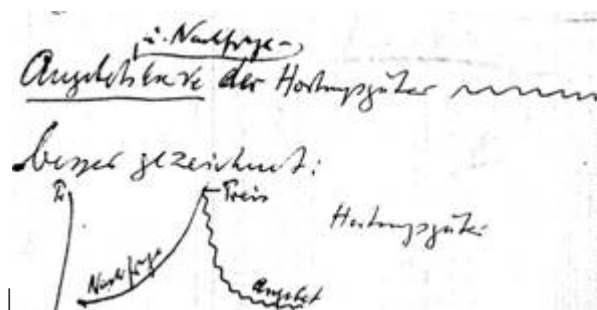 u. Nachfrage-
Angebotskurve der Hortungsgüter
besser gezeichnet:
Pr Preis
Hortungsgüter
Nachfrage Angebot